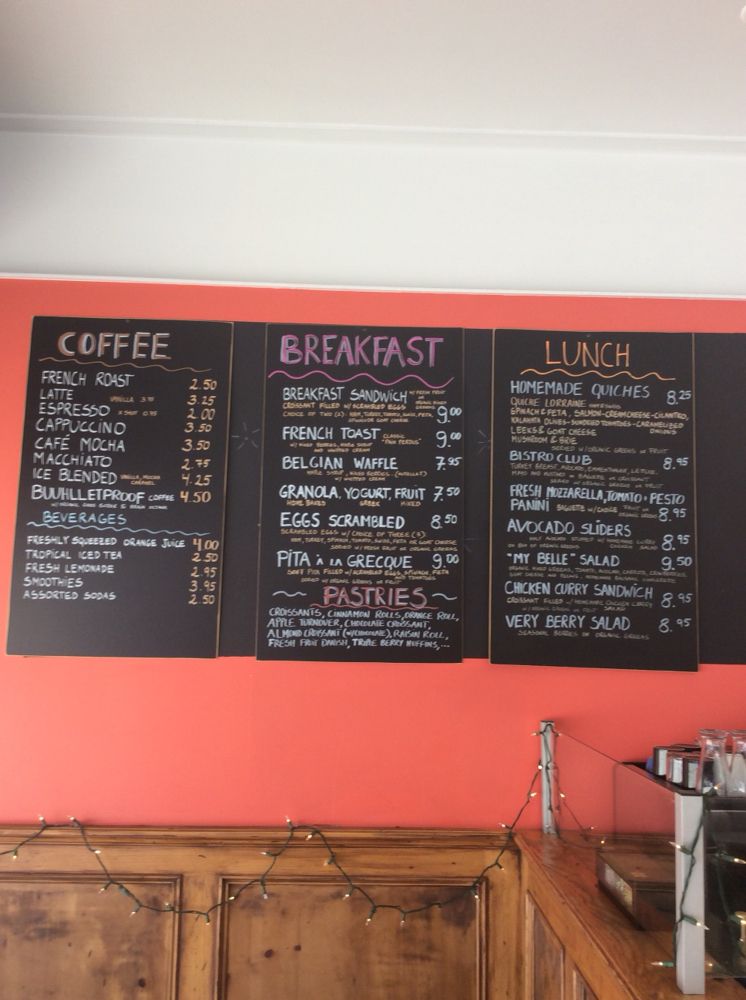 COFFEE
FRENCH ROAST 2.50
LATTE VANILLA 3.75 3.25
ESPRESSO X SHOT 0.75 2.00
CAPPUCCINO 3.50
CAFÉ MOCHA 3.50
MACCHIATO 2.75
ICE BLENDED VANILLA, MOCHA CARAMEL 4.25
BUUHLLETPROOF COFFEE 4.50
W/ ORGANIC GRASS BUTTER & BRAIN OCTANE
BEVERAGES
FRESHLY SQUEEZED ORANGE JUICE 4.00
TROPICAL ICED TEA 2.50
FRESH LEMONADE 2.95
SMOOTHIES 3.95
ASSORTED SODAS 2.50
BREAKFAST
BREAKFAST SANDWICH W/ FRESH FRUIT OR 9.00
CROISSANT FILLED W/ SCRAMBLED EGGS
CHOICE OF TWO (2): HAM, TURKEY, TOMATO, SWISS, FETA,
GOAT CHEESE
FRENCH TOAST CLASSIC "PAIN PERDUS" 9.00
W/ MIXED BERRIES, MAPLE SYRUP
AND WHIPPED CREAM
BELGIAN WAFFLE 7.95
MAPLE SYRUP, MIXED BERRIES, (NUTELLA)
W/ WHIPPED CREAM
GRANOLA, YOGURT, FRUIT 7.50
HOME BAKED GREEK MIXED
EGGS SCRAMBLED 8.50
SCRAMBLED EGGS W/ CHOICE OF THREE (3)
HAM, TURKEY, SPINACH, TOMATO, SWISS, FETA OR GOAT CHEESE
SERVED W/ FRESH FRUIT OR ORGANIC GREENS
PITA À LA GRECQUE 9.00
PITA FILLED W/ SCRAMBLED EGGS, SPINACH, FETA
AND TOMATOES
SERVED W/ ORGANIC GREENS OR FRUIT
PASTRIES
CROISSANTS, CINNAMON ROLLS, ORANGE ROLL,
APPLE TURNOVER, CHOCOLATE CROISSANT,
ALMOND CROISSANT (W/CHOCOLATE), RAISIN ROLL,
FRESH FRUIT DANISH, TRIPLE BERRY MUFFINS,...
LUNCH
HOMEMADE QUICHES 8.25
QUICHE LORRAINE
SPINACH & FETA, SALMON-CREAMCHEESE-CILANTRO,
KALAMATA OLIVES-SUNDRIED TOMATOES-CARAMELIZED ONIONS
LEEKS & GOAT CHEESE
MUSHROOM & BRIE
SERVED W/ORGANIC GREENS OR FRUIT
BISTRO CLUB 8.95
TURKEY BREAST, AVOCADO, EMMENTHALER, LETTUCE,
MAYO AND MUSTARD IN BAGUETTE OR CROISSANT
SERVED W/ ORGANIC GREENS OR FRUIT
FRESH MOZZARELLA, TOMATO & PESTO
PANINI BAGUETTE W/CHOICE FRUIT OR ORGANIC GREENS 8.95
AVOCADO SLIDERS 8.95
HALF AVOCADO STUFFED W/ HOMEMADE CURRY
ON BED OF ORGANIC GREENS CHICKEN SALAD
"MY BELLE" SALAD 9.50
ORGANIC MIXED GREENS, TOMATO, AVOCADO, CARROTS, CRANBERRIES,
GOAT CHEESE AND HOMEMADE BALSAMIC VINAIGRETTE
CHICKEN CURRY SANDWICH 8.95
CROISSANT FILLED W/ HOMEMADE CHICKEN CURRY SALAD
W/ORGANIC GREENS OR FRUIT
VERY BERRY SALAD 8.95
SEASONAL BERRIES ON ORGANIC GREENS